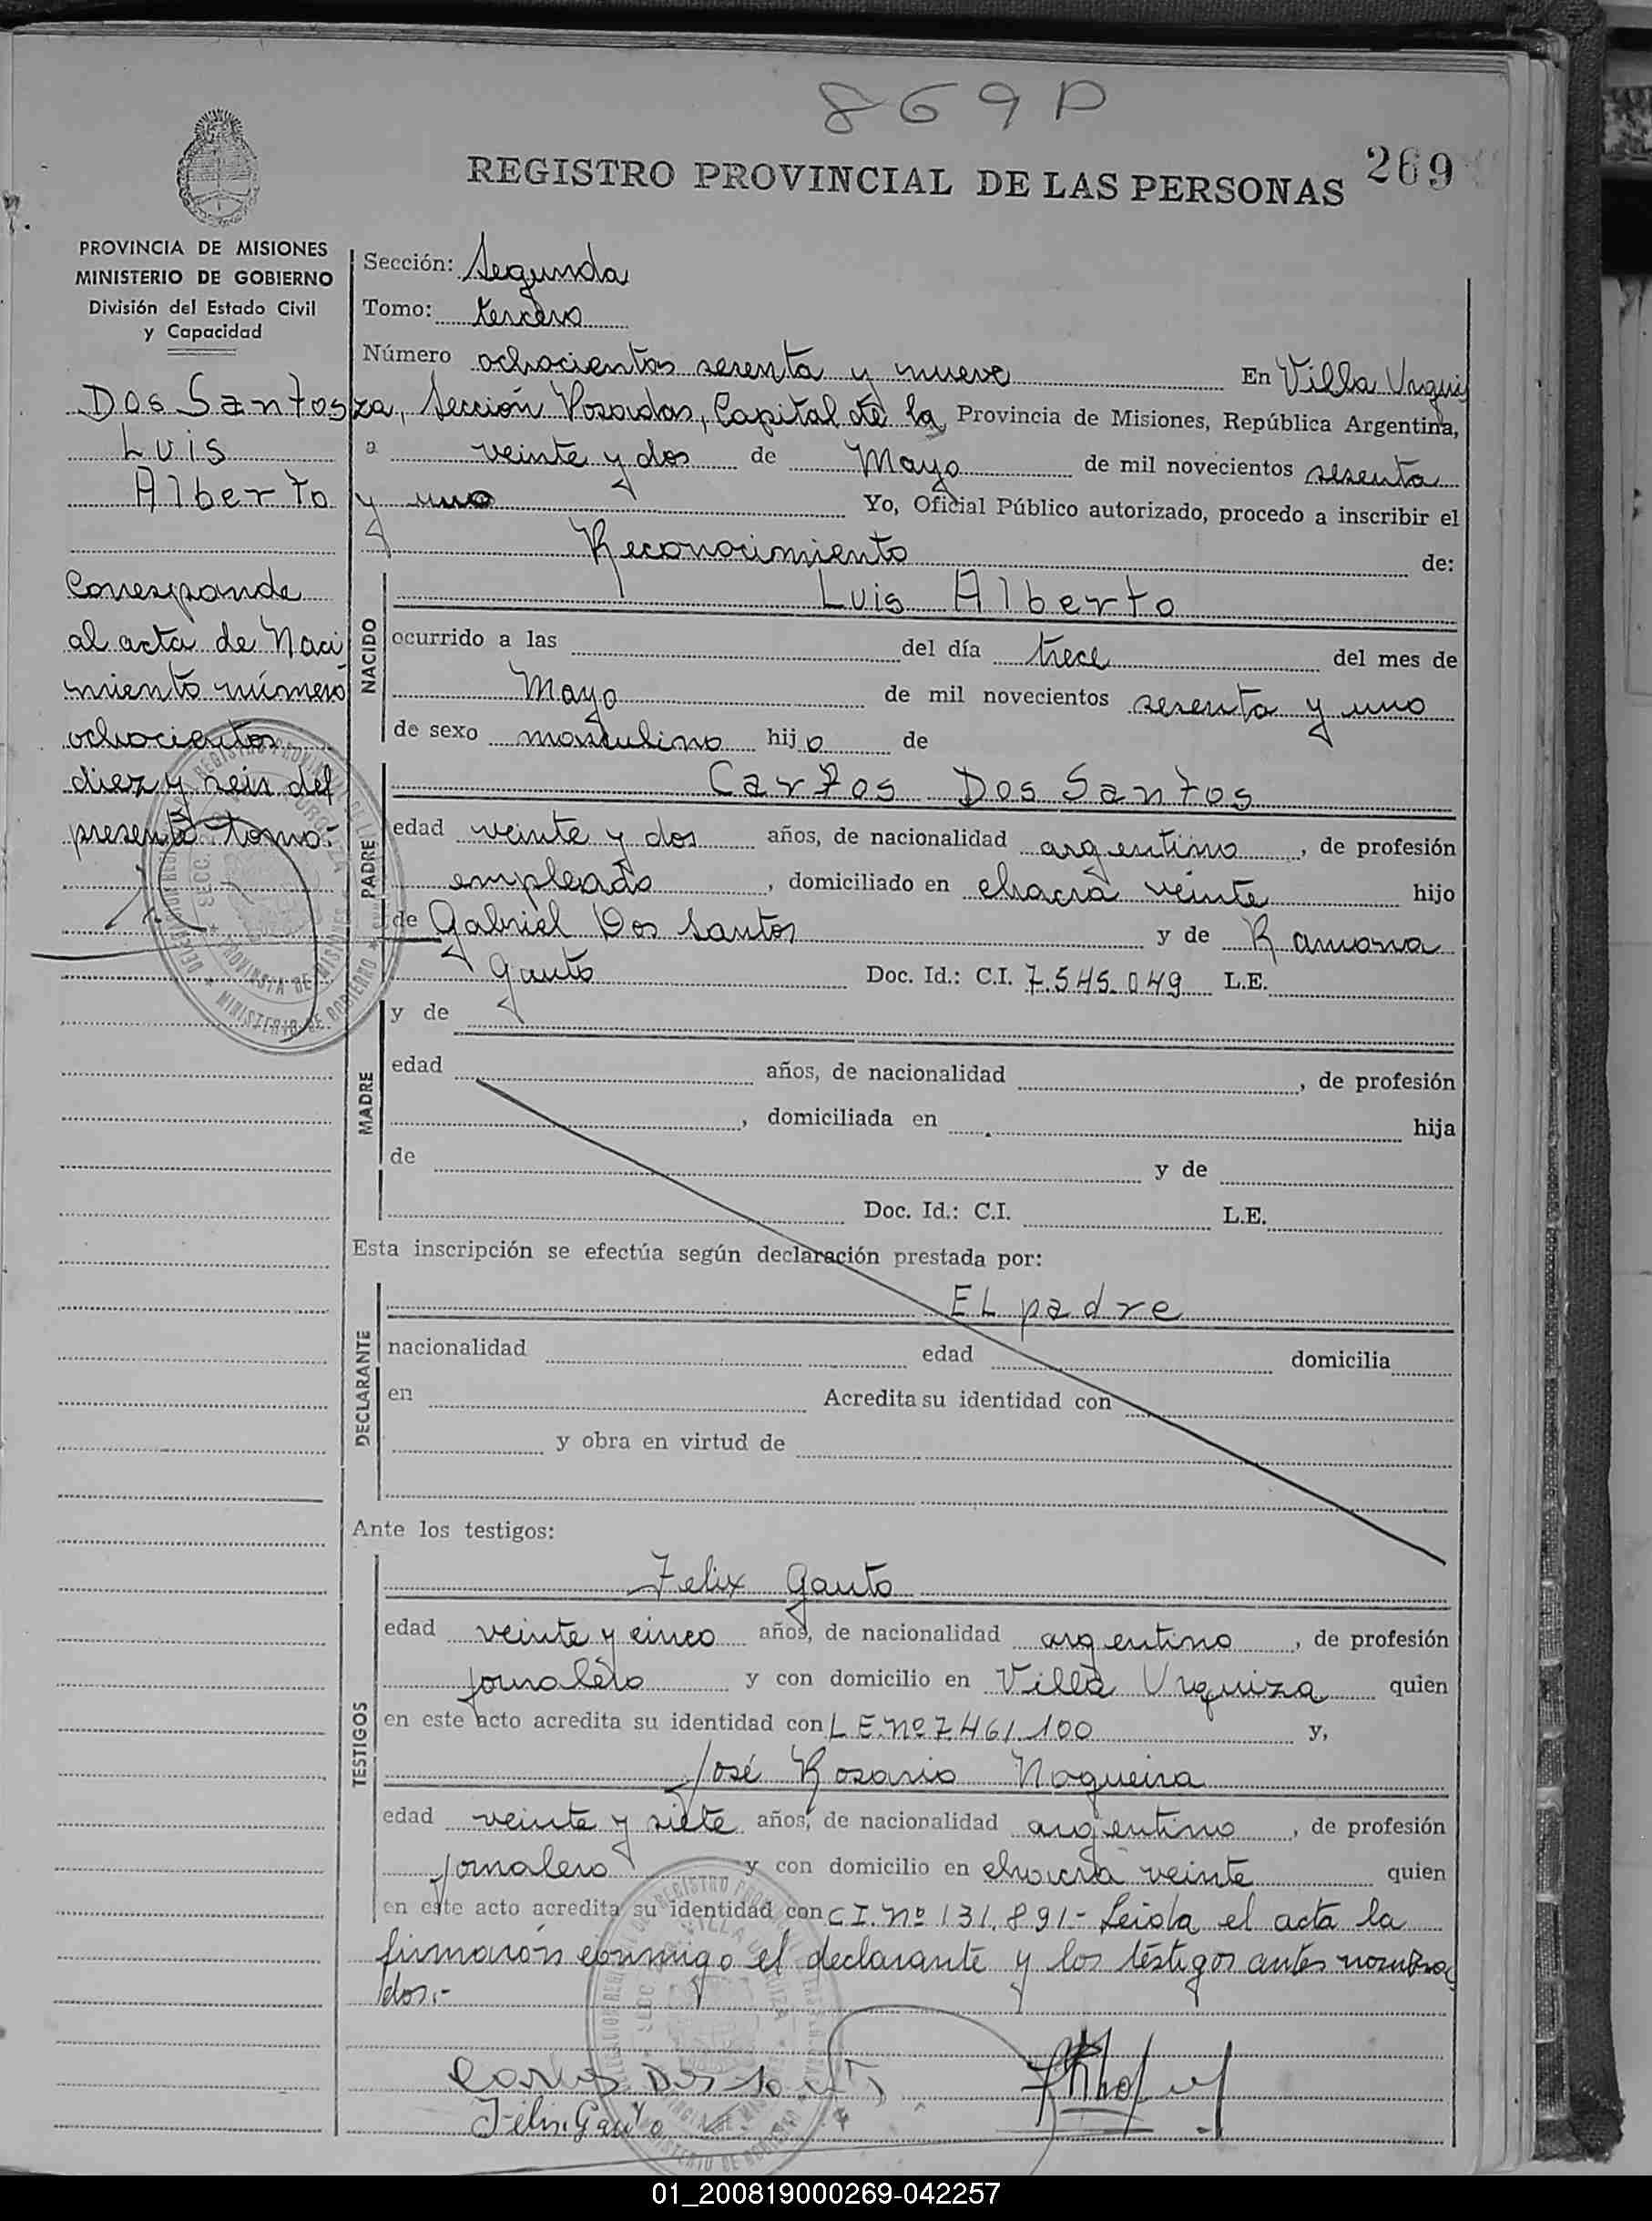 869 P
REGISTRO PROVINCIAL DE LAS PERSONAS 269
PROVINCIA DE MISIONES
MINISTERIO DE GOBIERNO
División del Estado Civil
y Capacidad
Dos Santos
Luis
Alberto
Corresponde
al acta de Naci
miento número
ochocientos
diez y seis del
presente tomo.-
Sección: Segunda
Tomo: tercero
Número ochocientos sesenta y nueve En Villa Urqui
za, Sección Posadas, Capital de la Provincia de Misiones, República Argentina,
a veinte y dos de Mayo de mil novecientos sesenta
y uno Yo, Oficial Público autorizado, procedo a inscribir el
Reconocimiento de:
NACIDO
Luis Alberto
ocurrido a las del día trece del mes de
Mayo de mil novecientos sesenta y uno
de sexo masculino hijo de
PADRE
Carlos Dos Santos
edad veinte y dos años, de nacionalidad argentino, de profesión
empleado, domiciliado en chacra veinte hijo
de Gabriel Dos Santos y de Ramona
Gauto Doc. Id.: C.I. 7.545.049 L.E.
MADRE
y de
edad años, de nacionalidad , de profesión
, domiciliada en hija
de y de
Doc. Id.: C.I. L.E.
Esta inscripción se efectúa según declaración prestada por:
DECLARANTE
EL padre
nacionalidad edad domicilia
en Acredita su identidad con
y obra en virtud de
Ante los testigos:
TESTIGOS
Felix Gauto
edad veinte y cinco años, de nacionalidad argentino, de profesión
jornalero y con domicilio en Villa Urquiza quien
en este acto acredita su identidad con L E. Nº 7.461.100 y,
José Rosario Nogueira
edad veinte y siete años, de nacionalidad argentino, de profesión
jornalero y con domicilio en chacra veinte quien
en este acto acredita su identidad con C I. Nº 131.891.- Leida el acta la
firmaron conmigo el declarante y los testigos antes nombra
dos.-
Carlos Dos Santos
Felix Gauto
01_200819000269-042257